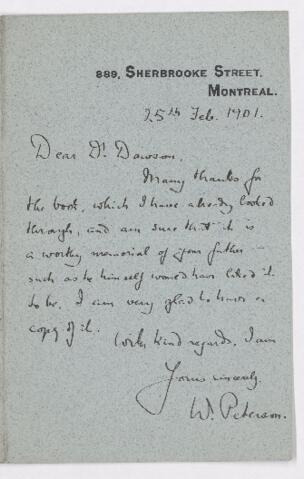 889, SHERBROOKE STREET,
MONTREAL.
25th Feb. 1901.
Dear Dr Dawson,
Many thanks for
the book, which I have already looked
through, and am sure that it is
a worthy memorial of your father –
such as he himself would have liked it
to be. I am very glad to have a
copy of it.
With kind regards, I am
Yours sincerely,
W. Peterson.